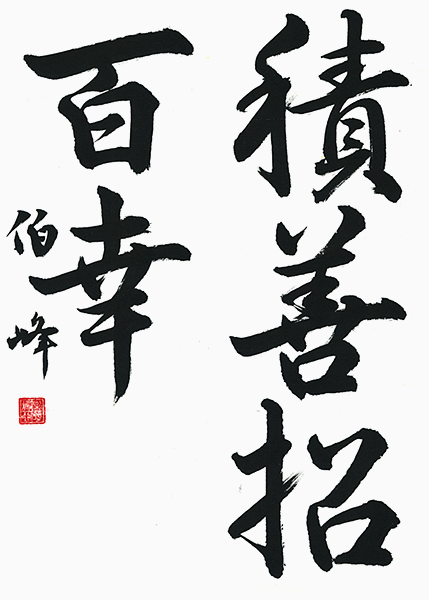 積善招
百幸
伯峰